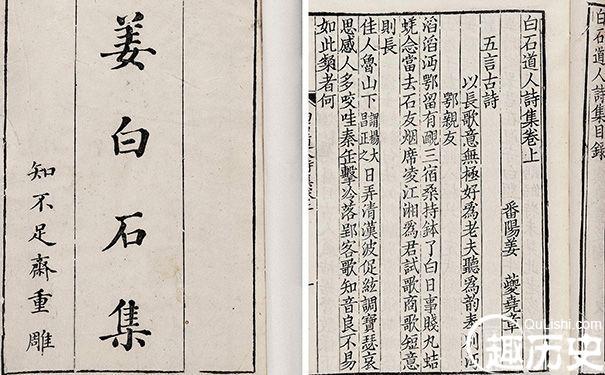 姜白石集
知不足齋重雕
白石道人詩集目録
白石道人詩集卷上
番陽姜 夔堯章
五言古詩
以長歌意無極好為老夫聽為韵奉别沔
鄂親友
滔滔沔鄂留有靦三宿桑持鉢了白日事賤丸蛣
蜣念當去石友烟席凌江湘為君試歌商歌短意
則長
佳人魯山下謂楊大昌正之日弄清漢波促絃調寶瑟哀
思感人多咬哇秦缶擊冷落郢客歌知音良不易
如此粲者何
QuLishi.com
趣历史